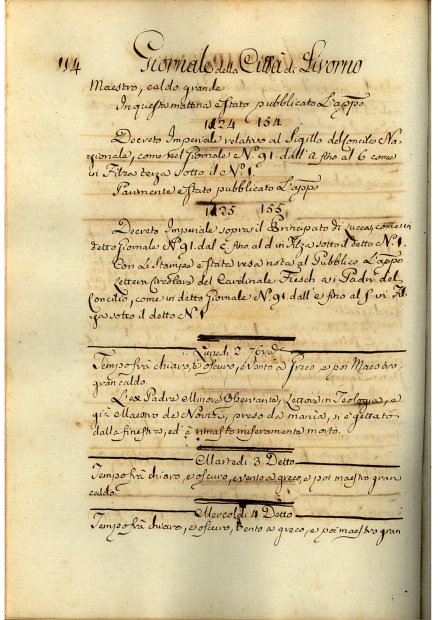 114 Giornale della Città di Livorno
Maestro, caldo grande
In questa mattina è stato pubblicato L'appo
1124 154
Decreto Imperiale relativo al Sigillo del Concilio Na-
zionale, come nel Giornale N.º 91. dall' a fino al 6 come
in Filza terza sotto il d.º N.º 1.
Parimente è stato pubblicato L'appo
1125 155
Decreto Imperiale sopra il Principato di Lucca, come in
detto Giornale N.º 91. dal c fino al d in Filza sotto il detto N.º 1.
Con Le Stampe è stata resa nota al Pubblico L'appo
Lettera Circolare del Cardinale Fiesch a i Padri del
Concilio, come in detto Giornale N.º 91. dall' e fino al f. in Fil-
za sotto il detto N.º 1
Lunedì 2. 7bre
Tempo frà chiaro, e oscuro, e vento a Greco, e poi Maestro
gran caldo.
L'ex Padre Minore Osservante, Lettore in Teologia, e
già Maestro de Novizi, preso da mania, si è gettato
dalla finestra, ed è rimasto miseramente morto.
Martedì 3. Detto
Tempo frà chiaro, e oscuro, e vento a greco, e poi maestro gran
caldo.
Mercoldì 4 Detto
Tempo frà chiaro, e oscuro, vento a greco, e poi maestro gran